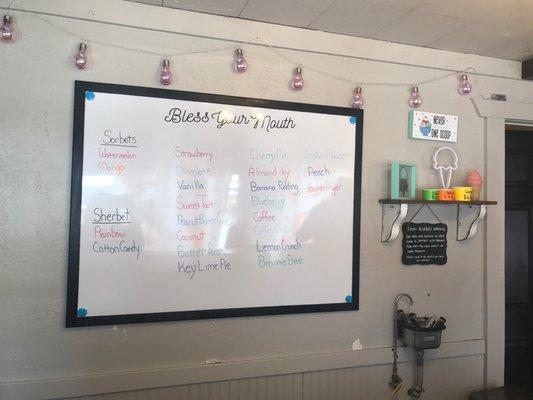 Bless Your Mouth
Sorbets
Watermelon
Mango
Sherbet
Rainbow
Cotton Candy
Strawberry
Chocolate
Vanilla
SweetTart
Peanut Butter
Coconut
Butter Pecan
Key Lime Pie
Cherry Pie
Almond Joy
Banana Pudding
Blueberry
Coffee
Lemon Crunch
Brownie Batter
Cookie Monster
Peach
Butterfinger
NEVER
ONE SCOOP
FOOD ALLERGY WARNING